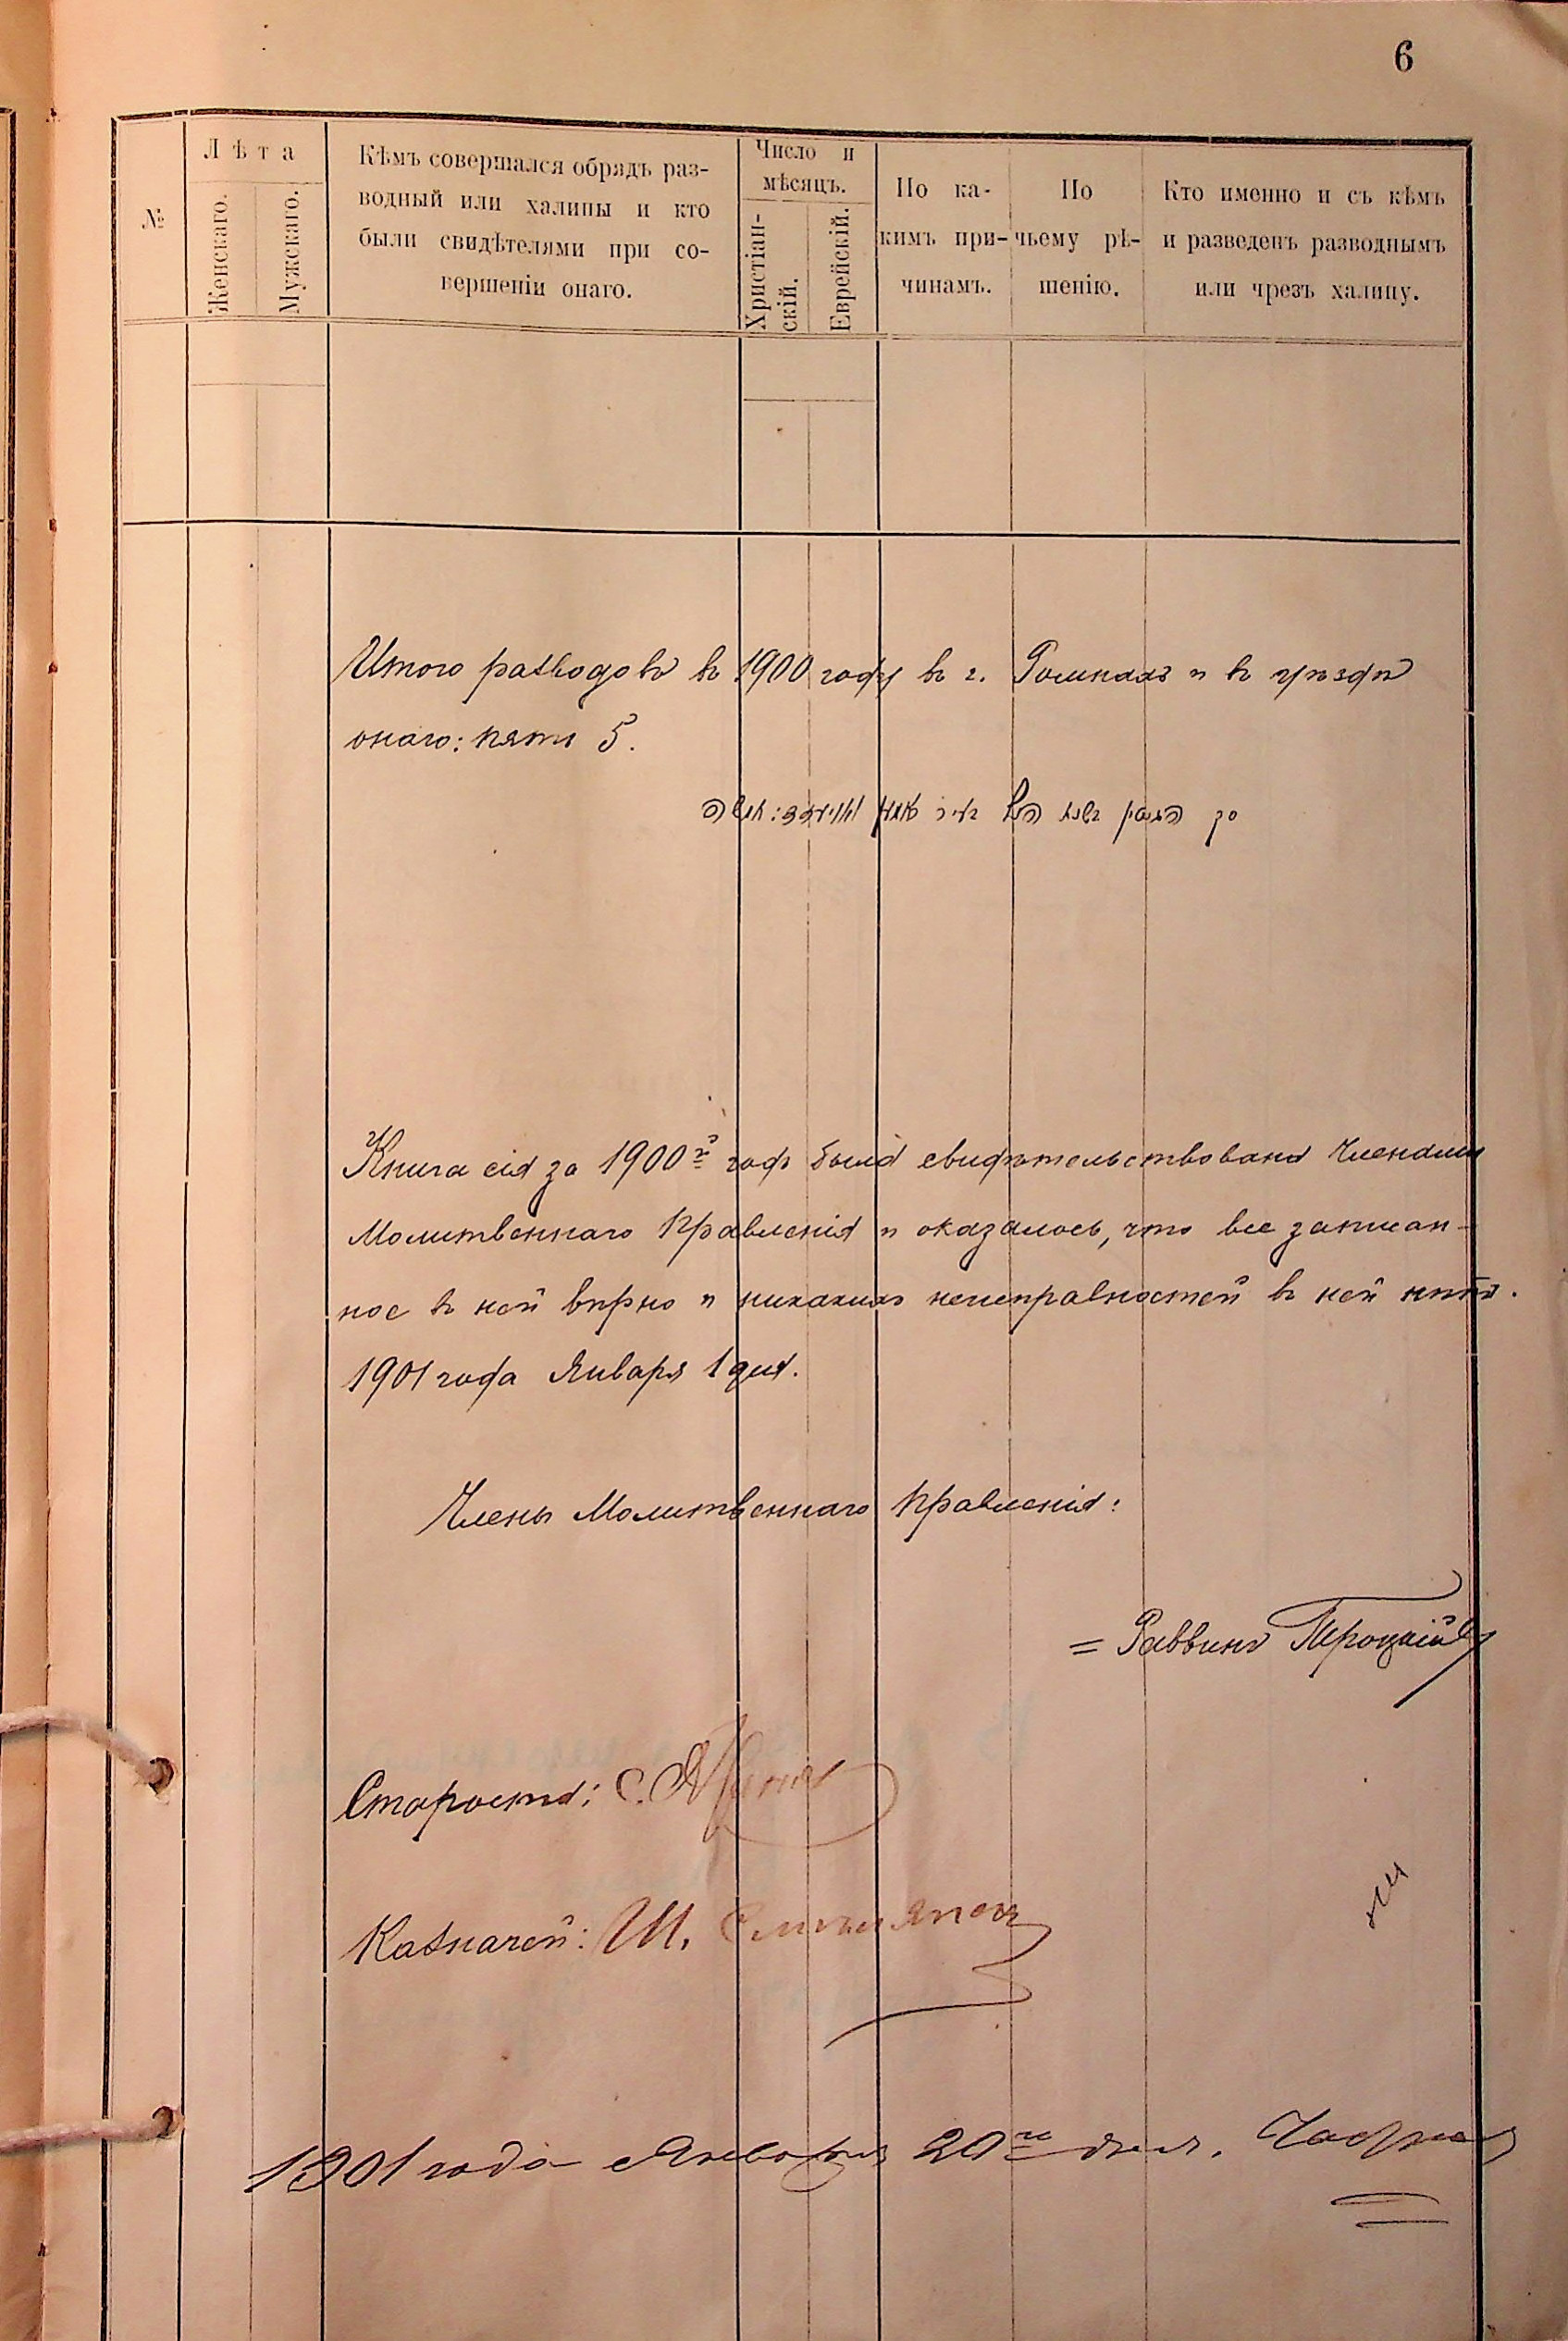 6
№
Лѣта
Женскаго.
Мужскаго.
Кѣмъ совершался обрядъ раз-
водный или халицы и кто
были свидѣтелями при со-
вершеніи онаго.
Число и
мѣсяцъ.
Христіан-
скій.
Еврейскій.
По ка-
кимъ при-
чинамъ.
По
чьему рѣ-
шенію.
Кто именно и съ кѣмъ
и разведенъ разводнымъ
или чрезъ халицу.
Итого разводовъ въ 1900 году въ г. Ромнахъ и въ уѣздѣ
онаго: пять 5.
סך
Книга сія за 1900й годъ была свидѣтельствована Членами
Молитвеннаго Правленія и оказалось, что все записан-
ное въ ней вѣрно и никакихъ неисправностей въ ней нѣтъ.
1901 года Января 1 дня.
Члены Молитвеннаго Правленія:
= Раввинъ Троцкій
Староста: С.
Казначей: Ш.
1901 года Января 20го дня.